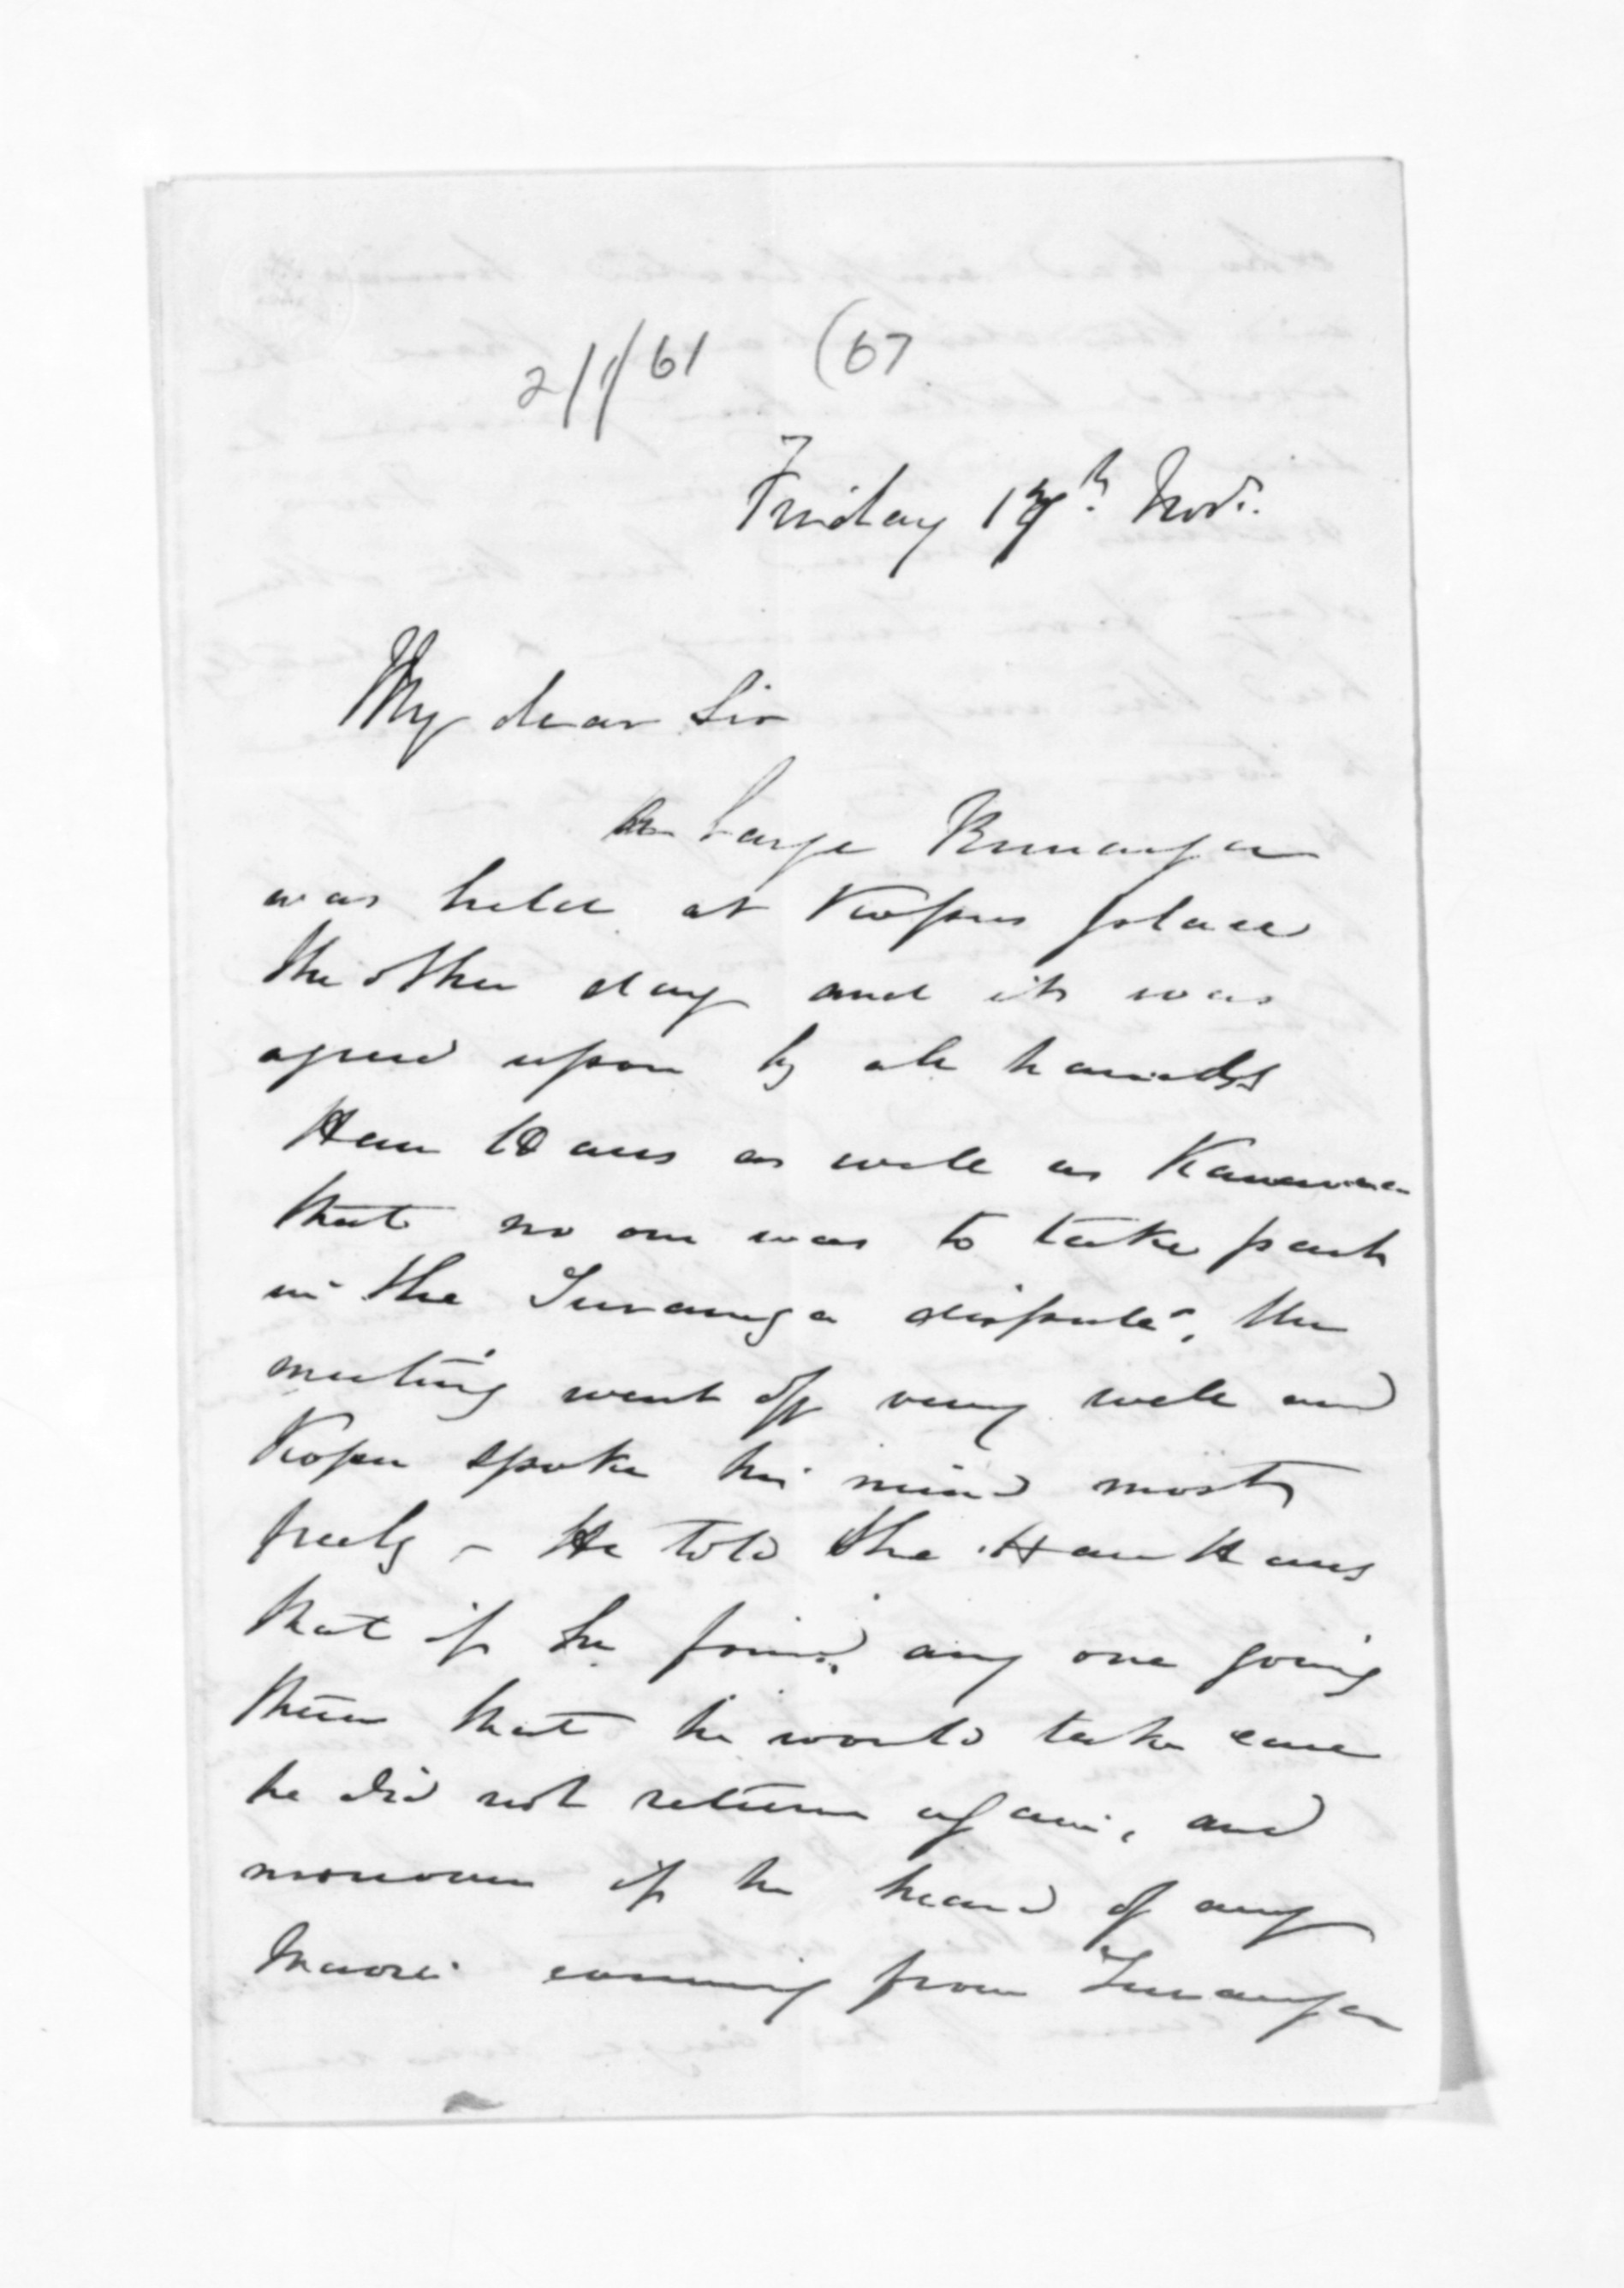 2/1/61 (67
Friday 17th Novr.
My dear Sir
A large Runanga
was held at Kopus place
the other day and it was
agreed upon by all hands
Hau Haus as well as
that no one was to take part
in the Turanga dispute, the
meeting went off very well and
Kopu spoke his mind most
freely - He told the Hau Haus
that if he found any one going
there that he would take care
he did not return again, and
moreover if he heard of any
Maori coming from Turanga